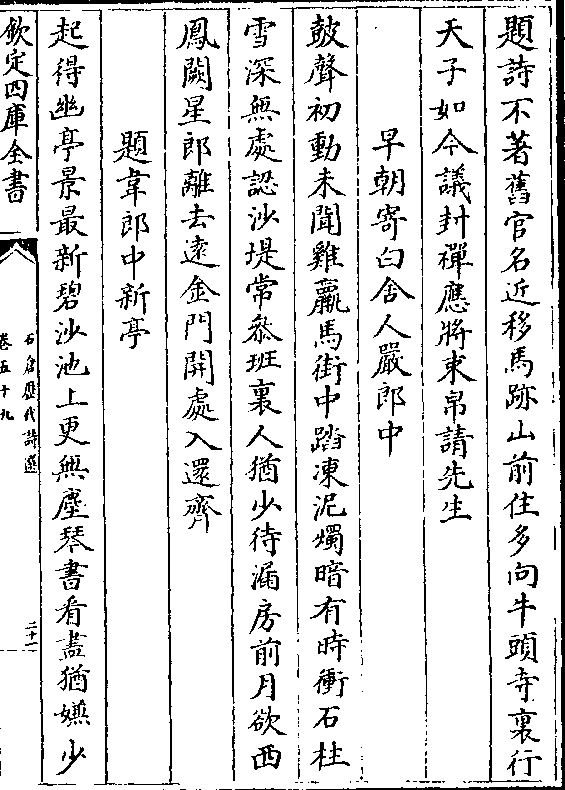 題詩不著舊官名近移馬跡山前住多向牛頭寺裏行
天子如今議封禪應將束帛請先生
早朝寄白舍人嚴郎中
鼓聲初動未聞雞羸馬街中踏凍泥燭暗有時衝石柱
雪深無處認沙堤常參班裏人猶少待漏房前月欲西
鳳闕星郎離去遠金門開處入還齊
題韋郎中新亭
起得幽亭景最新碧沙池上更無塵琴書看盡猶嫌少
欽定四庫全書
石倉歷代詩選
卷五十九
二十一